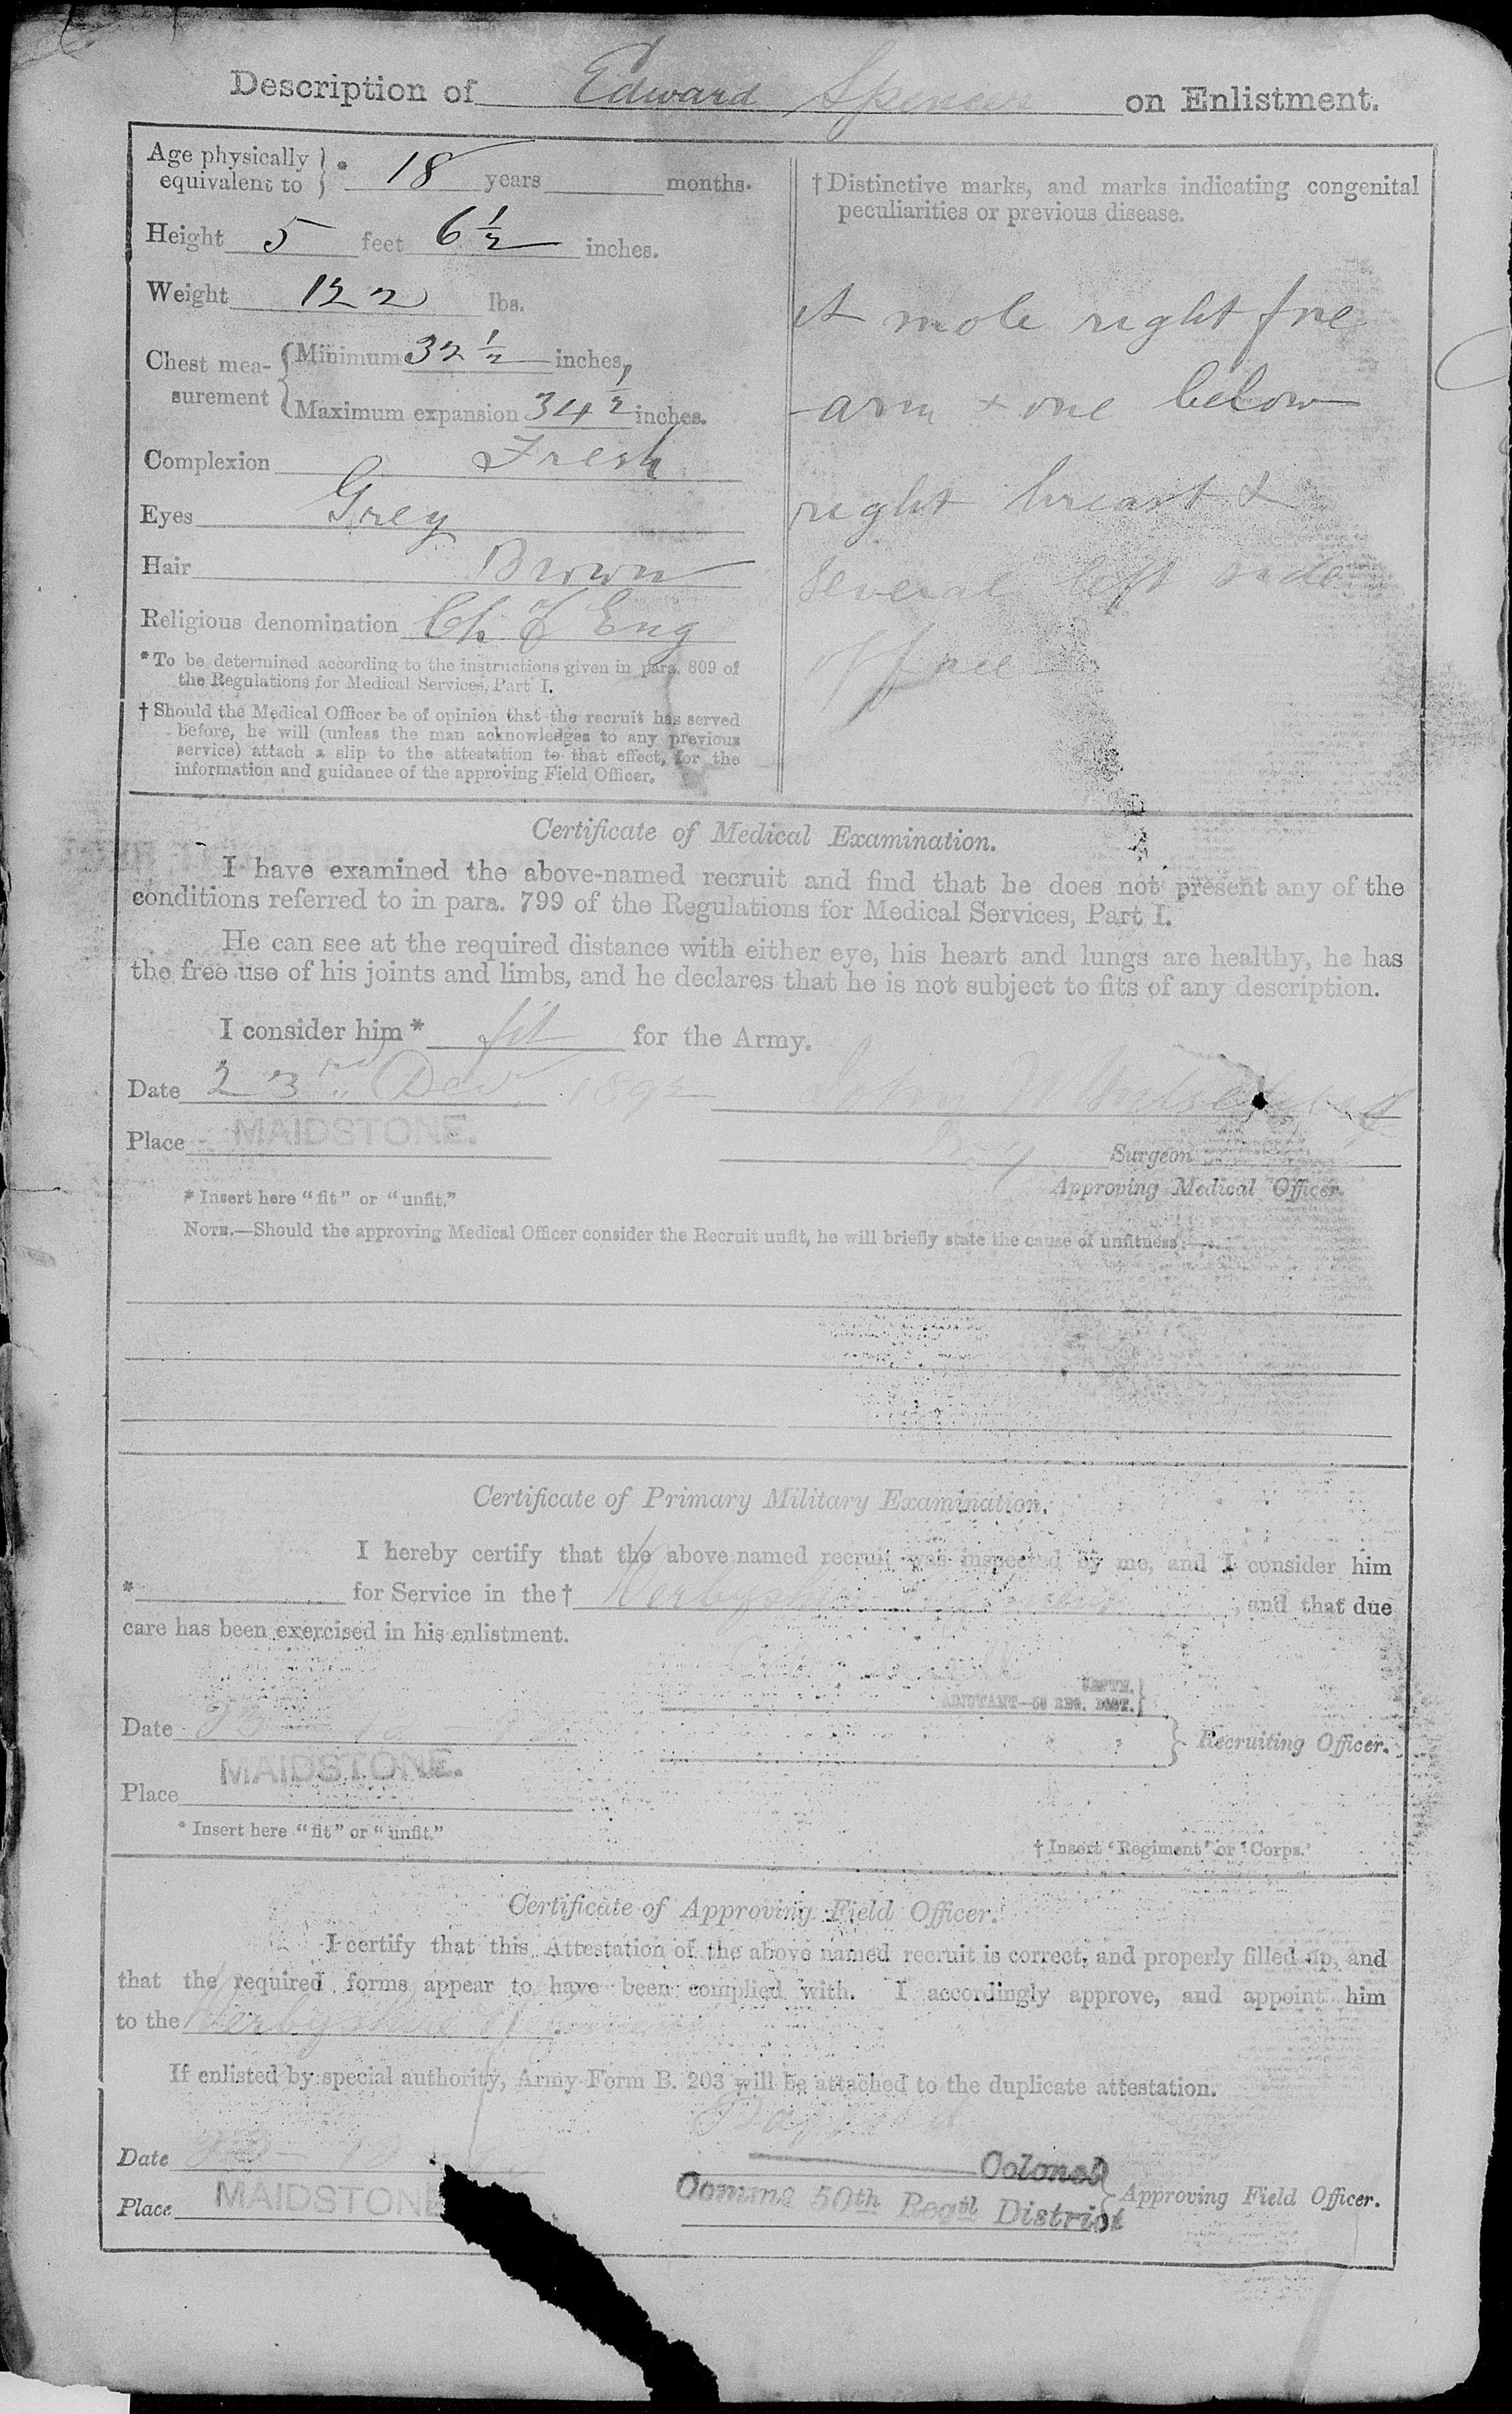 Description of Edward Spencer on Enlistment.
Age physically equivalent to * 18 years months.
Height 5 feet 6 1/2 inches.
Weight 122 lbs.
Chest mea-surement Minimum 32 1/2 inches,
Maximum expansion 34 1/2 inches.
Complexion Fresh
Eyes Grey
Hair Brown
Religious denomination Ch. of Eng
* To be determined according to the instructions given in para. 809 of
the Regulations for Medical Services, Part I.
† Should the Medical Officer be of opinion that the recruit has served
before, he will (unless the man acknowledges to any previous
service) attach a slip to the attestation to that effect, for the
information and guidance of the approving Field Officer.
† Distinctive marks, and marks indicating congenital
peculiarities or previous disease.
A mole right fore
arm + one below
right breast &
several left side
of face
Certificate of Medical Examination.
I have examined the above-named recruit and find that he does not present any of the
conditions referred to in para. 799 of the Regulations for Medical Services, Part I.
He can see at the required distance with either eye, his heart and lungs are healthy, he has
the free use of his joints and limbs, and he declares that he is not subject to fits of any description.
I consider him * fit for the Army.
Date 23rd Dec. 1892 John
Place MAIDSTONE.
Surgeon
Approving Medical Officer.
* Insert here "fit" or "unfit."
NOTE.—Should the approving Medical Officer consider the Recruit unfit, he will briefly state the cause of unfitness:—
Certificate of Primary Military Examination.
I hereby certify that the above named recruit was inspected by me, and I consider him
* for Service in the † Derbyshire Regiment, and that due
care has been exercised in his enlistment.
CAPTN.
ADJUTANT—50 REG. DIST.
Date 23
Recruiting Officer.
MAIDSTONE.
Place
* Insert here "fit" or "unfit."
† Insert 'Regiment' or 'Corps.'
Certificate of Approving Field Officer.
I certify that this Attestation of the above named recruit is correct, and properly filled up, and
that the required forms appear to have been complied with. I accordingly approve, and appoint him
to the Derbyshire Regiment
If enlisted by special authority, Army Form B. 203 will be attached to the duplicate attestation.
Date 23 12
Colonel
Place MAIDSTONE
Commg 50th Regtl District
Approving Field Officer.